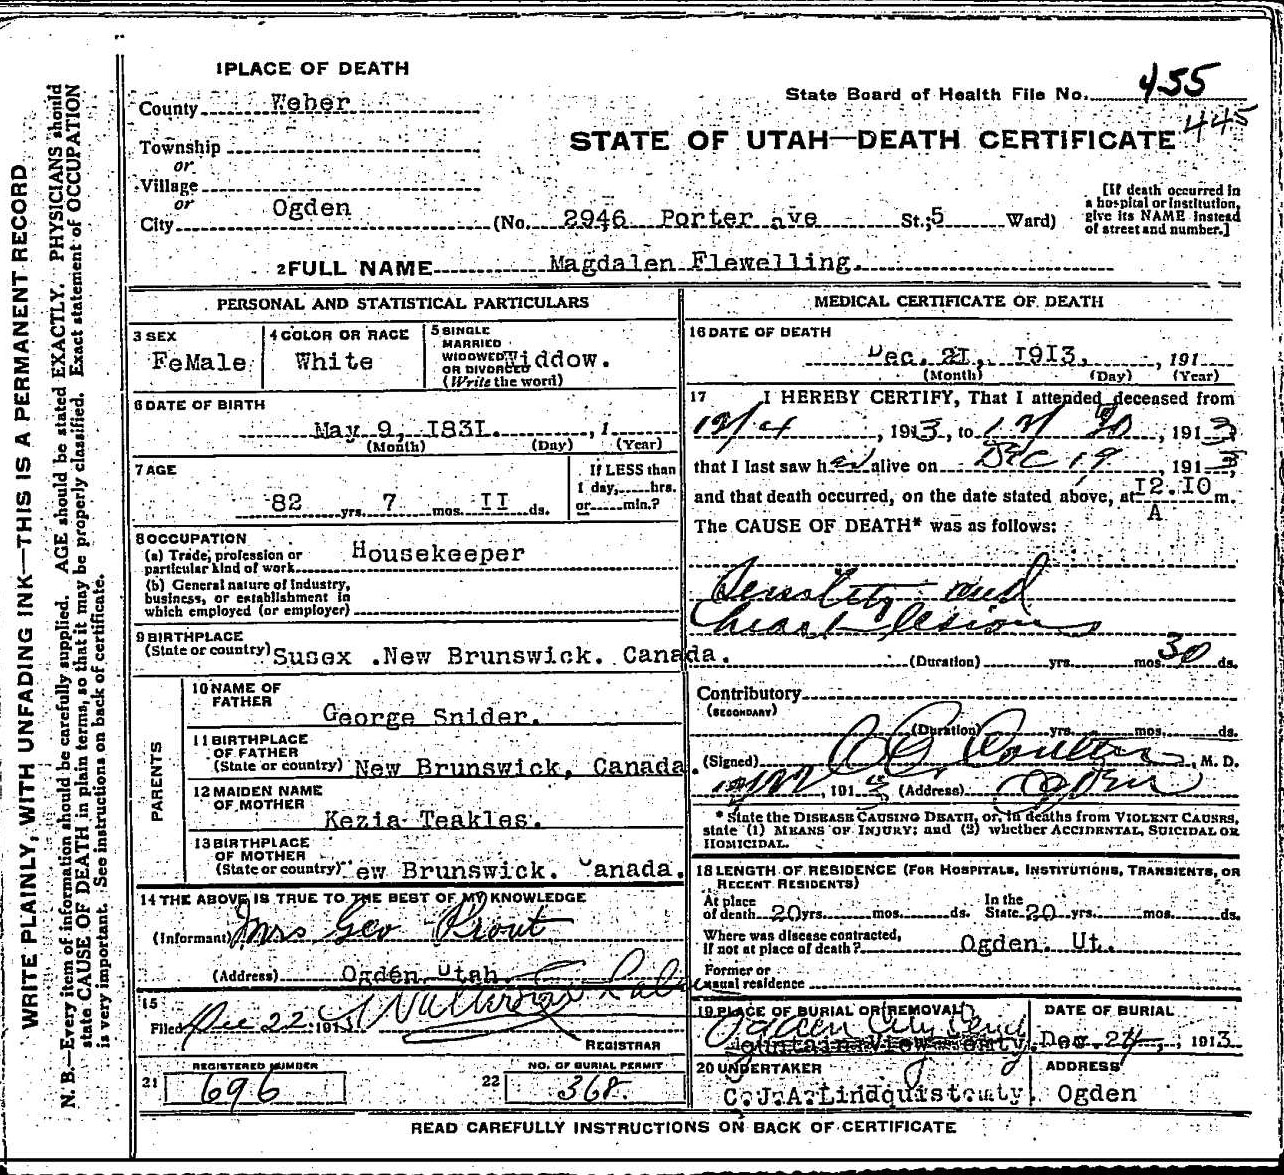 WRITE PLAINLY, WITH UNFADING INK—THIS IS A PERMANENT RECORD
N. B.—Every item of information should be carefully supplied. AGE should be stated EXACTLY. PHYSICIANS should
state CAUSE OF DEATH in plain terms, so that it may be properly classified. Exact statement of OCCUPATION
is very important. See instructions on back of certificate.
1 PLACE OF DEATH
County Weber
State Board of Health File No. 455
445
STATE OF UTAH—DEATH CERTIFICATE
Township
or
Village
or
City Ogden (No. 2946 Porter ave St.; 5 Ward)
[If death occurred in
a hospital or institution,
give its NAME instead
of street and number.]
2 FULL NAME Magdalen Flewelling.
PERSONAL AND STATISTICAL PARTICULARS
3 SEX
FeMale
4 COLOR OR RACE
White
5 SINGLE
MARRIED
WIDOWED
OR DIVORCED
(Write the word)
Widdow.
6 DATE OF BIRTH
May 9, I83I. , 1
(Month) (Day) (Year)
7 AGE
82 yrs. 7 mos. II ds.
If LESS than
1 day, hrs.
or min.?
8 OCCUPATION
(a) Trade, profession or
particular kind of work Housekeeper
(b) General nature of industry,
business, or establishment in
which employed (or employer)
9 BIRTHPLACE
(State or country) Susex .New Brunswick. Canada.
PARENTS
10 NAME OF
FATHER
George Snider.
11 BIRTHPLACE
OF FATHER
(State or country) New Brunswick, Canada.
12 MAIDEN NAME
OF MOTHER
Kezia Teakles.
13 BIRTHPLACE
OF MOTHER
(State or country) New Brunswick. Canada.
14 THE ABOVE IS TRUE TO THE BEST OF MY KNOWLEDGE
(Informant) Mrs Geo Prout
(Address) Ogden Utah
15
Filed Dec 22 191
REGISTRAR
REGISTERED NUMBER
21 696
NO. OF BURIAL PERMIT
22 368.
MEDICAL CERTIFICATE OF DEATH
16 DATE OF DEATH
Dec. 2I, I9I3, , 191
(Month) (Day) (Year)
17 I HEREBY CERTIFY, That I attended deceased from
12/4 , 1913, to 12/20 , 1913
that I last saw her alive on Dec 19 , 1913,
and that death occurred, on the date stated above, at I2.I0 m.
A
The CAUSE OF DEATH* was as follows:
Senility and
heart lesions
(Duration) yrs. mos. 30 ds.
Contributory
(SECONDARY)
(Duration) yrs. mos. ds.
(Signed) Coulter , M. D.
191 3 (Address) Ogden
* State the DISEASE CAUSING DEATH, or, in deaths from VIOLENT CAUSES,
state (1) MEANS OF INJURY; and (2) whether ACCIDENTAL, SUICIDAL OR
HOMICIDAL.
18 LENGTH OF RESIDENCE (FOR HOSPITALS, INSTITUTIONS, TRANSIENTS, OR
RECENT RESIDENTS)
At place
of death 20 yrs. mos. ds.
In the
State 20 yrs. mos. ds.
Where was disease contracted,
If not at place of death? Ogden. Ut.
Former or
usual residence
19 PLACE OF BURIAL OR REMOVAL
Ogden City
Mountain View
DATE OF BURIAL
Dec. 24, , 1913
20 UNDERTAKER
C.J.A.Lindquist
ADDRESS
Ogden
READ CAREFULLY INSTRUCTIONS ON BACK OF CERTIFICATE